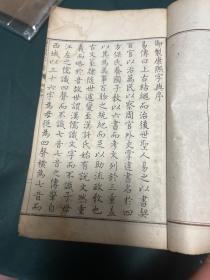 御製康熙字典序
易傳曰上古結繩而治後世聖人易之以書契
百官以治萬民以察周官外史掌達書名於四
方保氏養國子教以六書而考文列於三重蓋
以其為萬事百物之統紀而足以助流政教也
古文篆隸隨世遞變至漢許氏始有說文然重
義而略於音故世謂漢儒識文字而不識子母
江左之儒識四聲而不識七音七音之傳肇自
西域以三十六字為母從為四聲橫為七音而